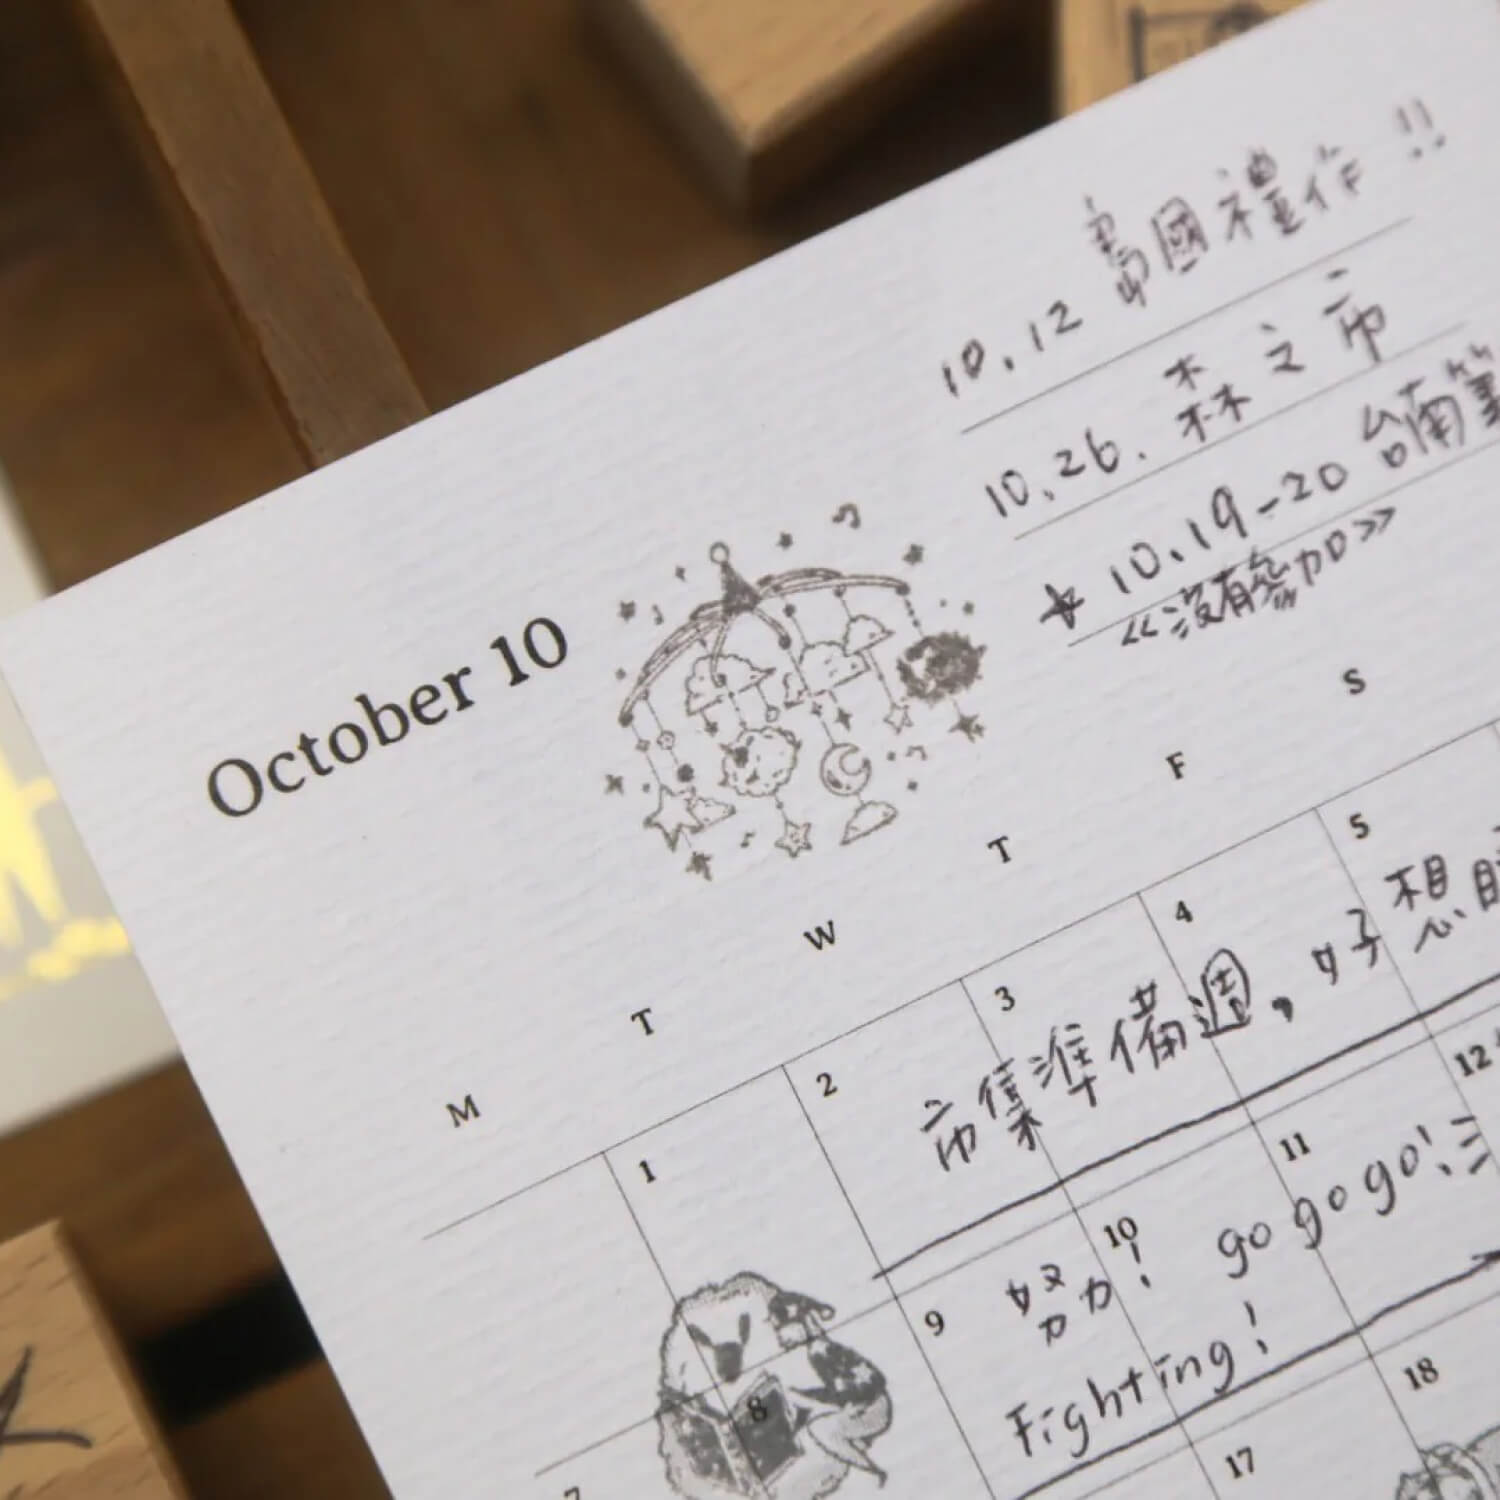 10.12 萬國禮作!!
10.26. 森之市
★ 10.19-20 台南
《沒有參加》
October 10
M T W T F S
1 2 3 4 5
市集準備週,好想
8 9 10 11 12
努力! go go go!
Fighting!
17 18